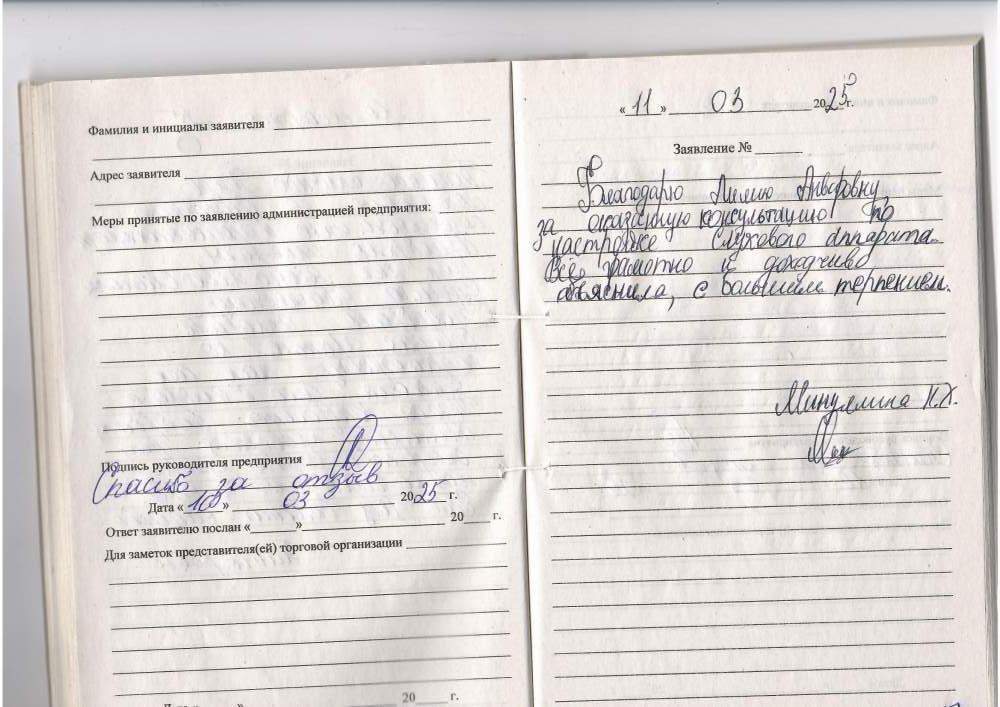 Фамилия и инициалы заявителя
Адрес заявителя
Меры принятые по заявлению администрацией предприятия:
Подпись руководителя предприятия
Спасибо за отзыв
Дата « » 03 2025 г.
Ответ заявителю послан « » 20 г.
Для заметок представителя(ей) торговой организации
20 г.
« 11 » 03 2025 г.
Заявление №
Благодарю Лилию Анваровну
за оказанную консультацию по
настройке слухового аппарата.
Всё грамотно и доходчиво
объяснила, с большим терпением.
Минуллина Н.Х.